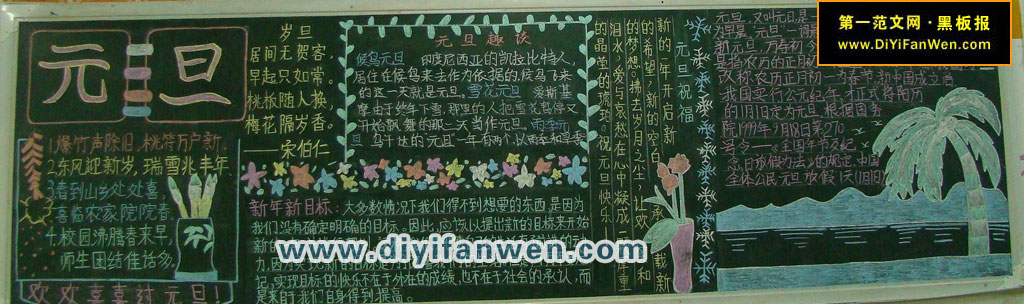 元旦
1.爆竹声除旧,桃符万户新。
2.东风迎新岁,瑞雪兆丰年
3.看到山乡处处喜
喜临农家院院春
4.校园沸腾春来早,
师生团结佳话多,
欢欢喜喜过元旦!
岁旦
居间无贺客,
早起只如常。
桃板随人换,
梅花隔岁香。
——宋伯仁
元旦趣谈
候鸟元旦 印度尼西亚的凯拉比特人,
居住在候鸟来去作为依据的,候鸟飞来
的这一天就是元旦,雪花元旦 爱斯基
摩由于终年下雪,那里的人把雪花暂停又
开始飘舞的那一天当作元旦。雨季元
旦 乌干达的元旦一年有两个,以雨季和旱季
新年新目标:大多数情况下我们得不到想要的东西,是因为
我们没有确定明确的目标。因此,应该以提出新的目标来开始
记,实现目标的快乐不在于外在的成绩,也不在于社会的承认,而
是来自于我们自身得到提高。
元旦祝福
新的一年开启新
的希望,新的空白承载新
的梦想。拂去岁月之尘,让欢笑和
泪水,爱与哀愁在心中凝成一厚重
的晶莹的琥珀。祝元旦快乐
元旦,又叫元日,是一
改称农历正月初一为春节,新中国成立后
我国实行公元纪年,才正式将阳历
的1月1日定为元旦,根据国务
院1999年9月18日第270
号令——《全国年节及纪
念日放假办法》的规定,中国
全体公民元旦放假1天(1月1日)
第一范文网·黑板报
www.DiYiFanWen.com
www.diyifanwen.com